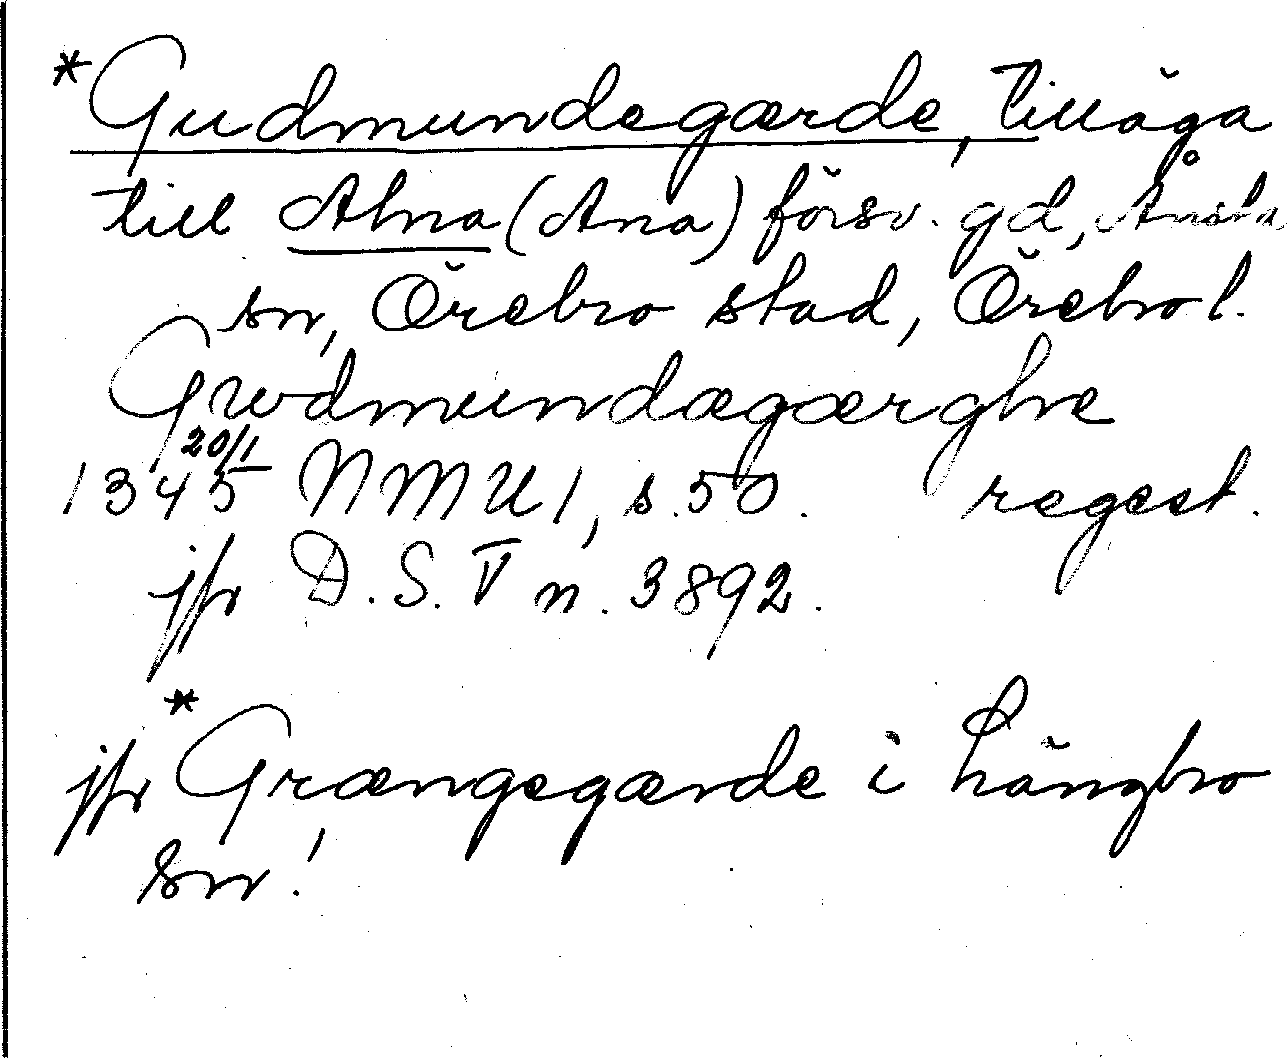 *Gudmundegærde, tillåga
till Alna (Ana) försv. gd, Ånsta
sn, Örebro stad, Örebro l.
Gudmundægærghe
1345 20/1 NMU 1, s. 50. regest.
jfr D. S. V n. 3892.
jfr *Grængegærde i Långbro
sn!